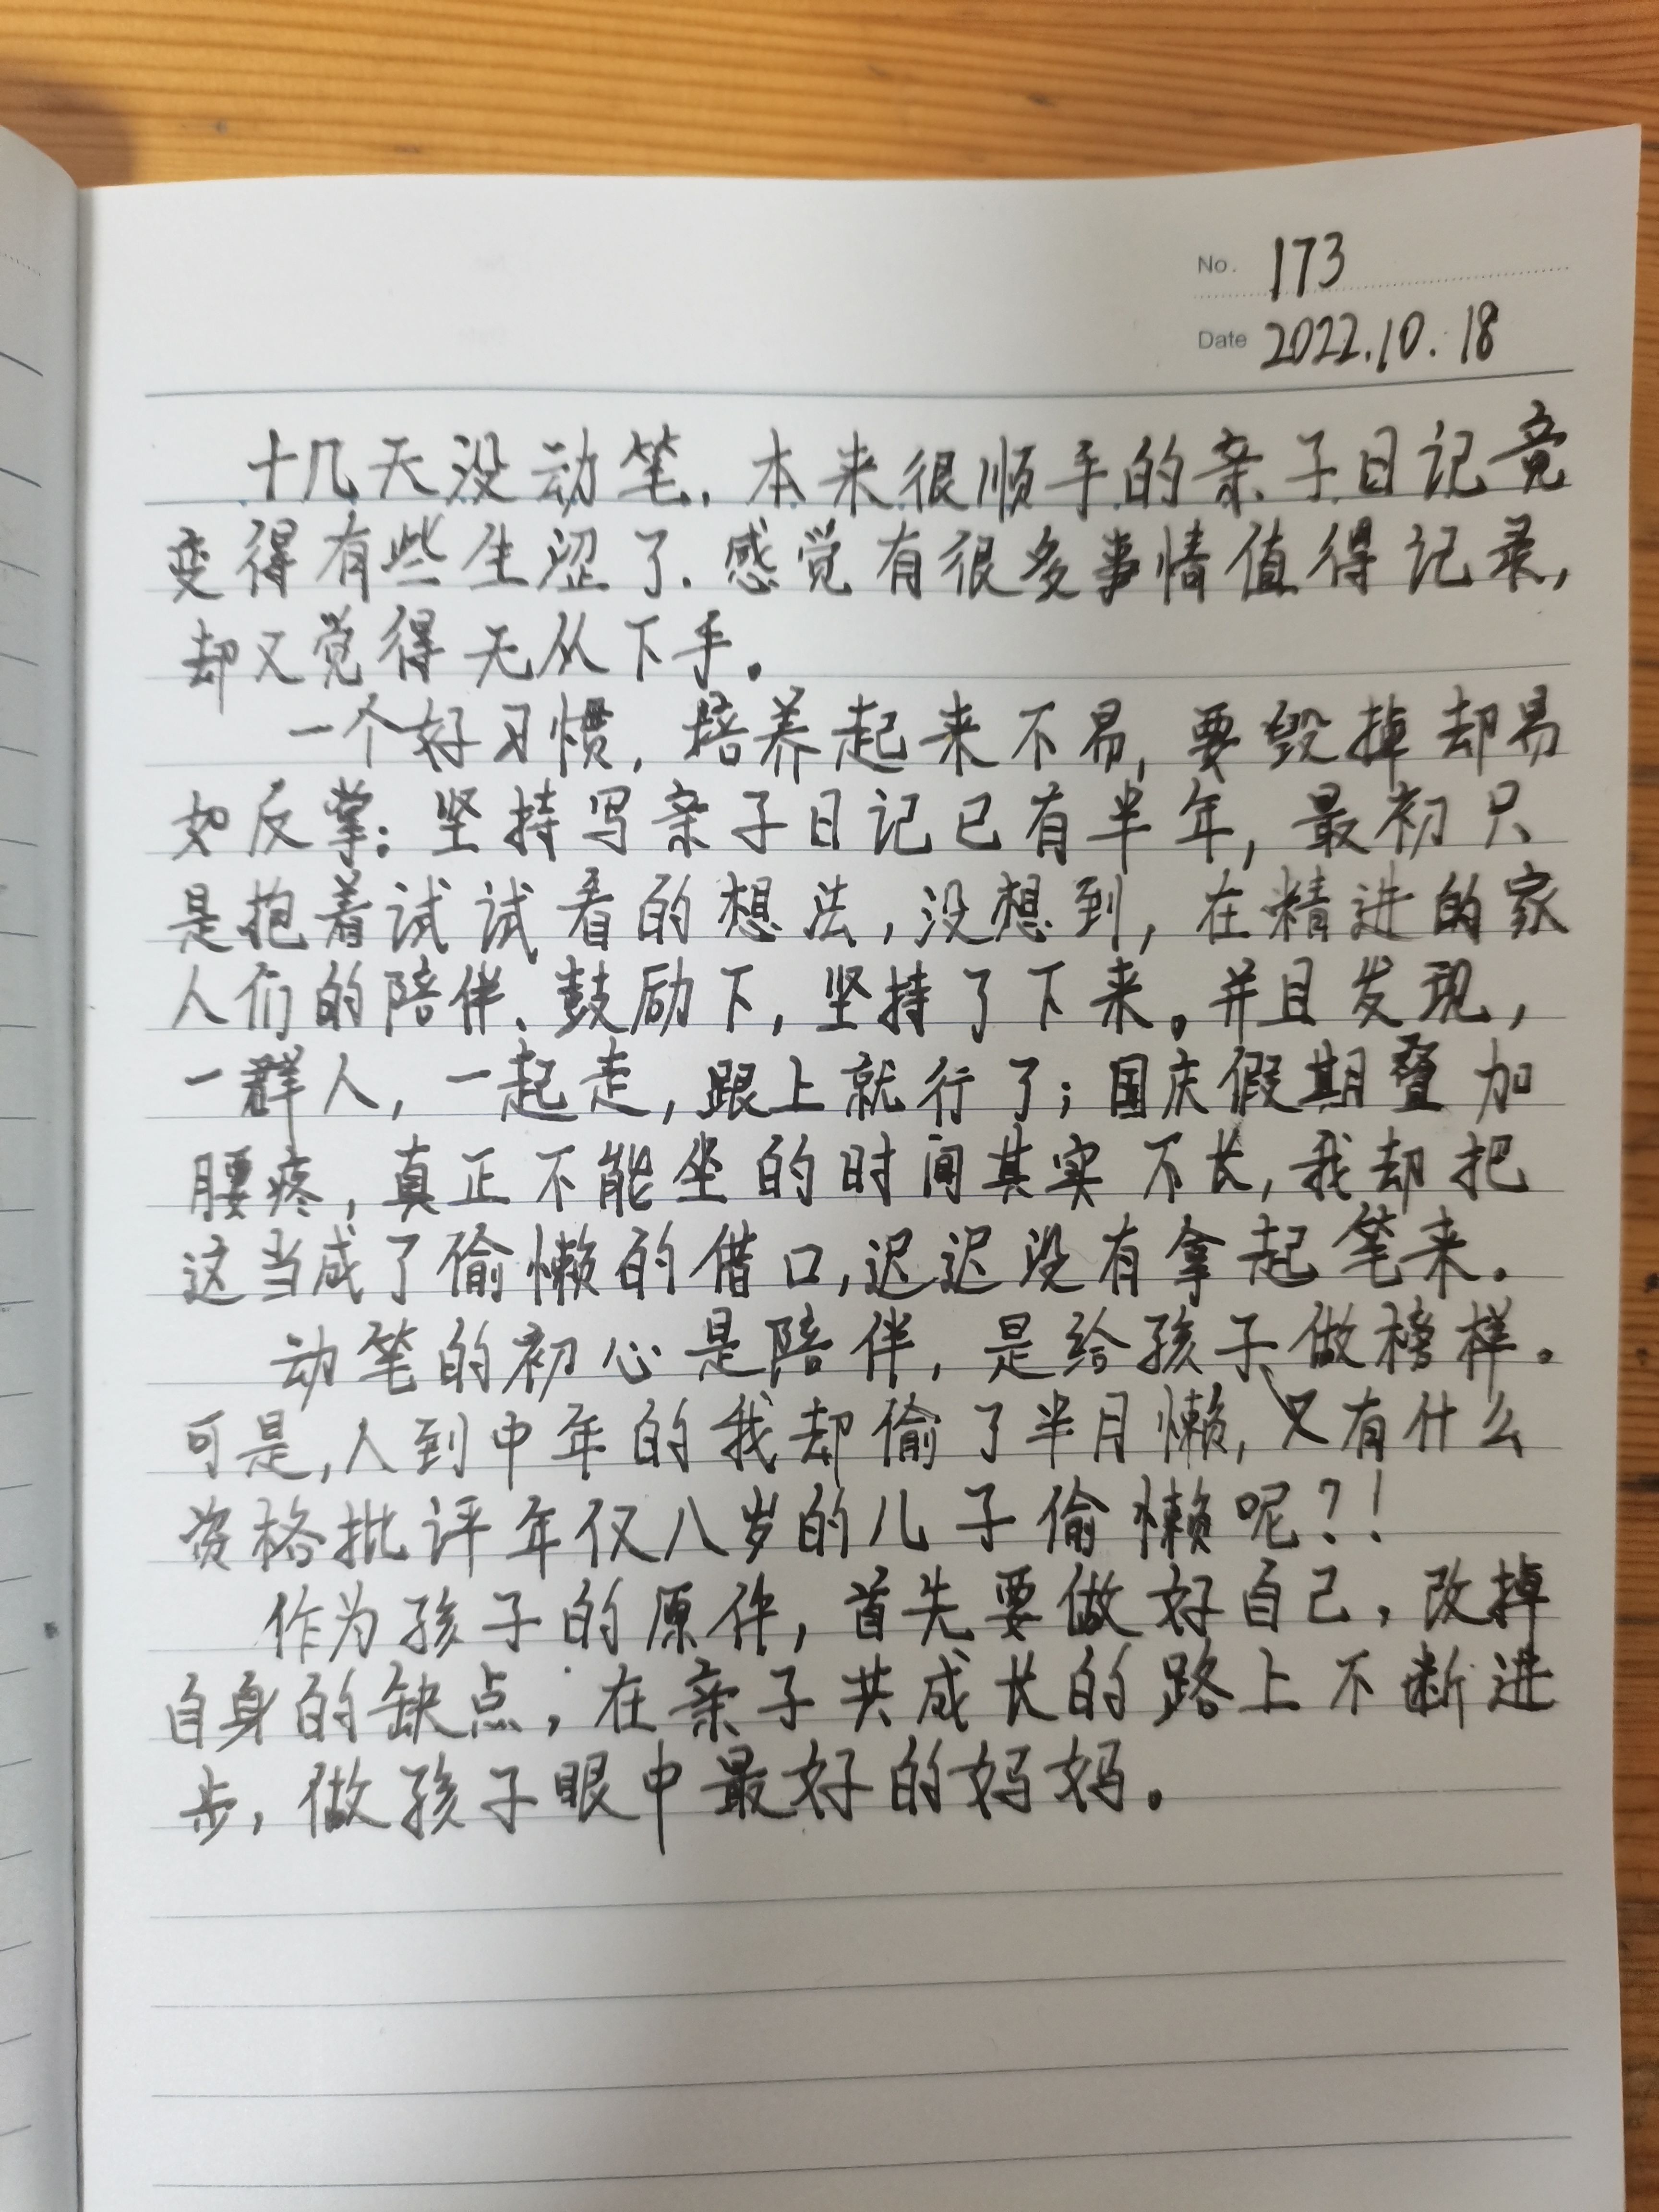 No. 173
Date 2022.10.18
十几天没动笔,本来很顺手的亲子日记竟
变得有些生涩了.感觉有很多事情值得记录,
却又觉得无从下手。
一个好习惯,培养起来不易,要毁掉却易
如反掌:坚持写亲子日记已有半年,最初只
是抱着试试看的想法,没想到,在精进的家
人们的陪伴、鼓励下,坚持了下来。并且发现,
一群人,一起走,跟上就行了;国庆假期叠加
腰疼,真正不能坐的时间其实不长,我却把
这当成了偷懒的借口,迟迟没有拿起笔来。
动笔的初心是陪伴,是给孩子做榜样。
可是,人到中年的我却偷了半月懒,又有什么
资格批评年仅八岁的儿子偷懒呢?!
作为孩子的原件,首先要做好自己,改掉
自身的缺点,在亲子共成长的路上不断进
步,做孩子眼中最好的妈妈。